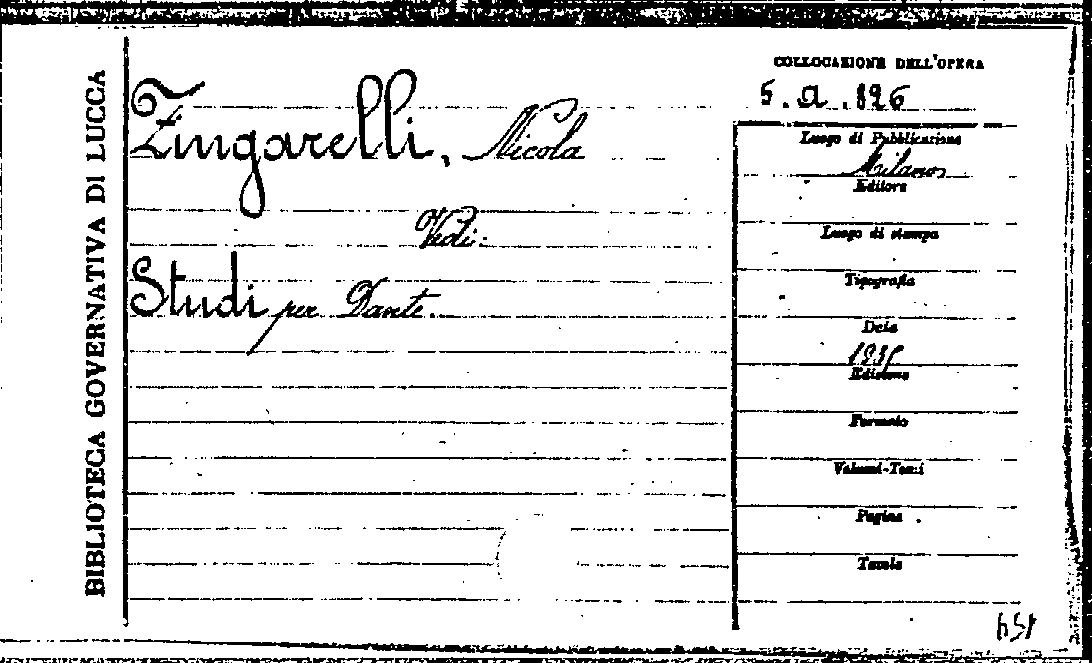 BIBLIOTECA GOVERNATIVA DI LUCCA
Zingarelli, Nicola
Vedi:
Studi per Dante.
COLLOCAZIONE DELL'OPERA
5. a. 126
Luogo di Pubblicazione
Milano
Editore
Luogo di stampa
Tipografia
Data
1935
Edizione
Formato
Volumi-Tomi
Pagine
Tavole